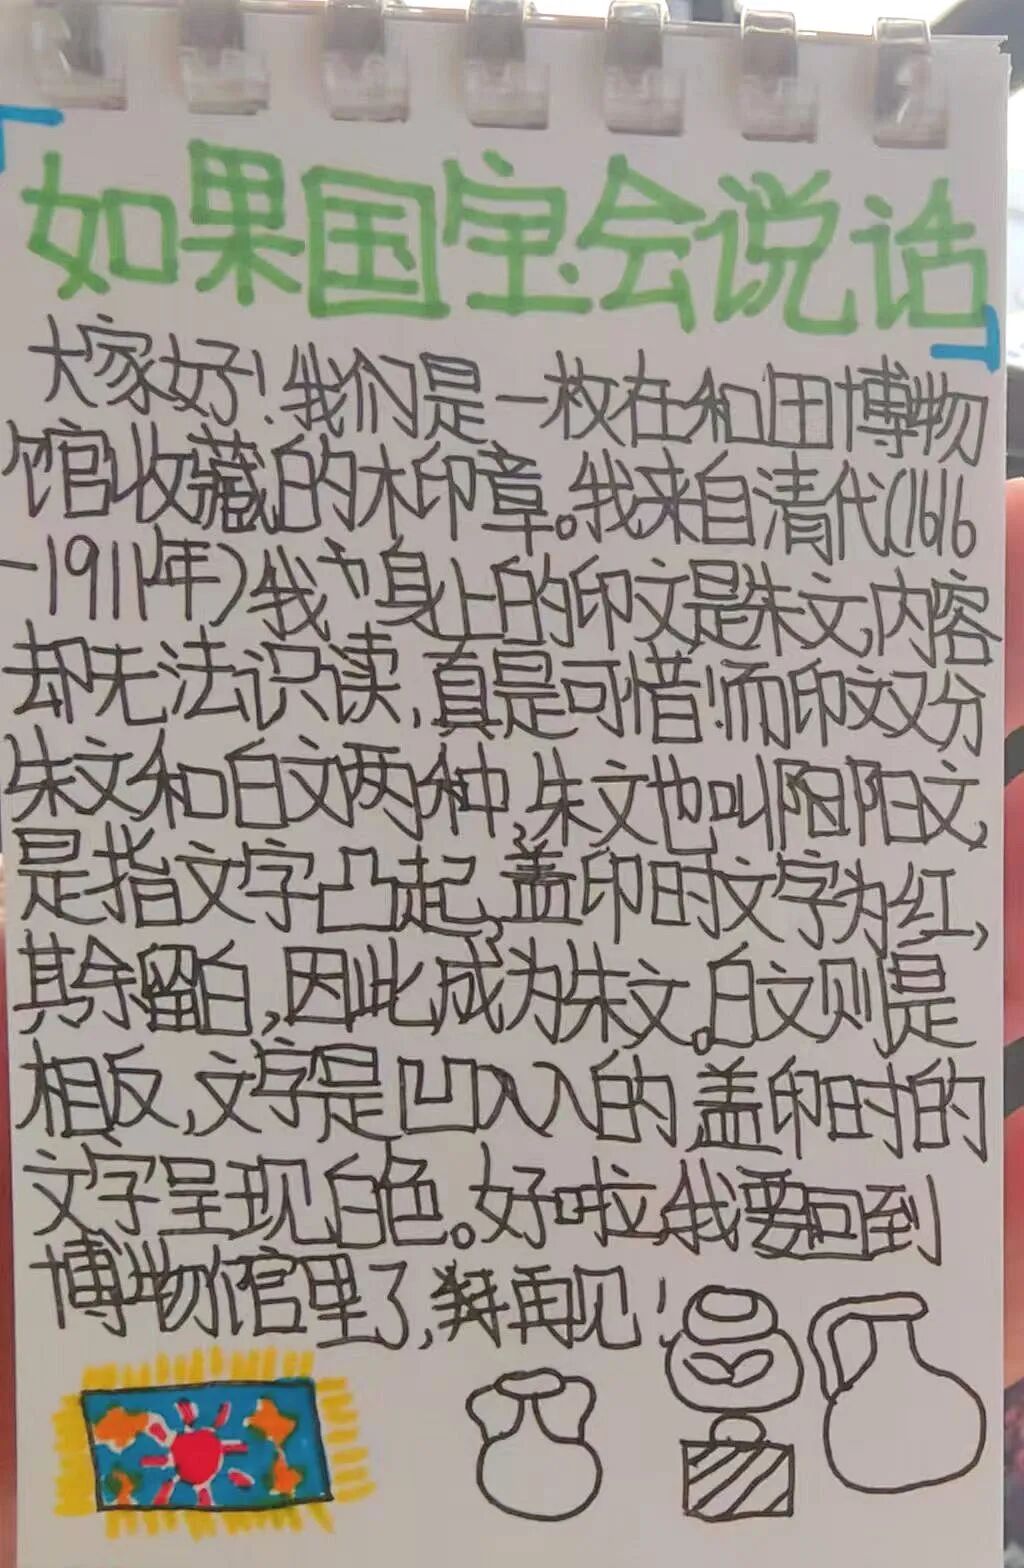 「如果国宝会说话」
大家好！我们是一枚在和田博物
馆收藏的木印章。我来自清代(1616
-1911年)我身上的印文是朱文,内容
却无法识读,真是可惜!而印文又分
朱文和白文两种,朱文也叫阳阳文,
是指文字凸起,盖印时文字为红,
其余留白,因此,成为朱文。白文则是
相反,文字是凹入入的 盖印时的
文字呈现白色。好啦,我要回到
博物馆里了,再见!